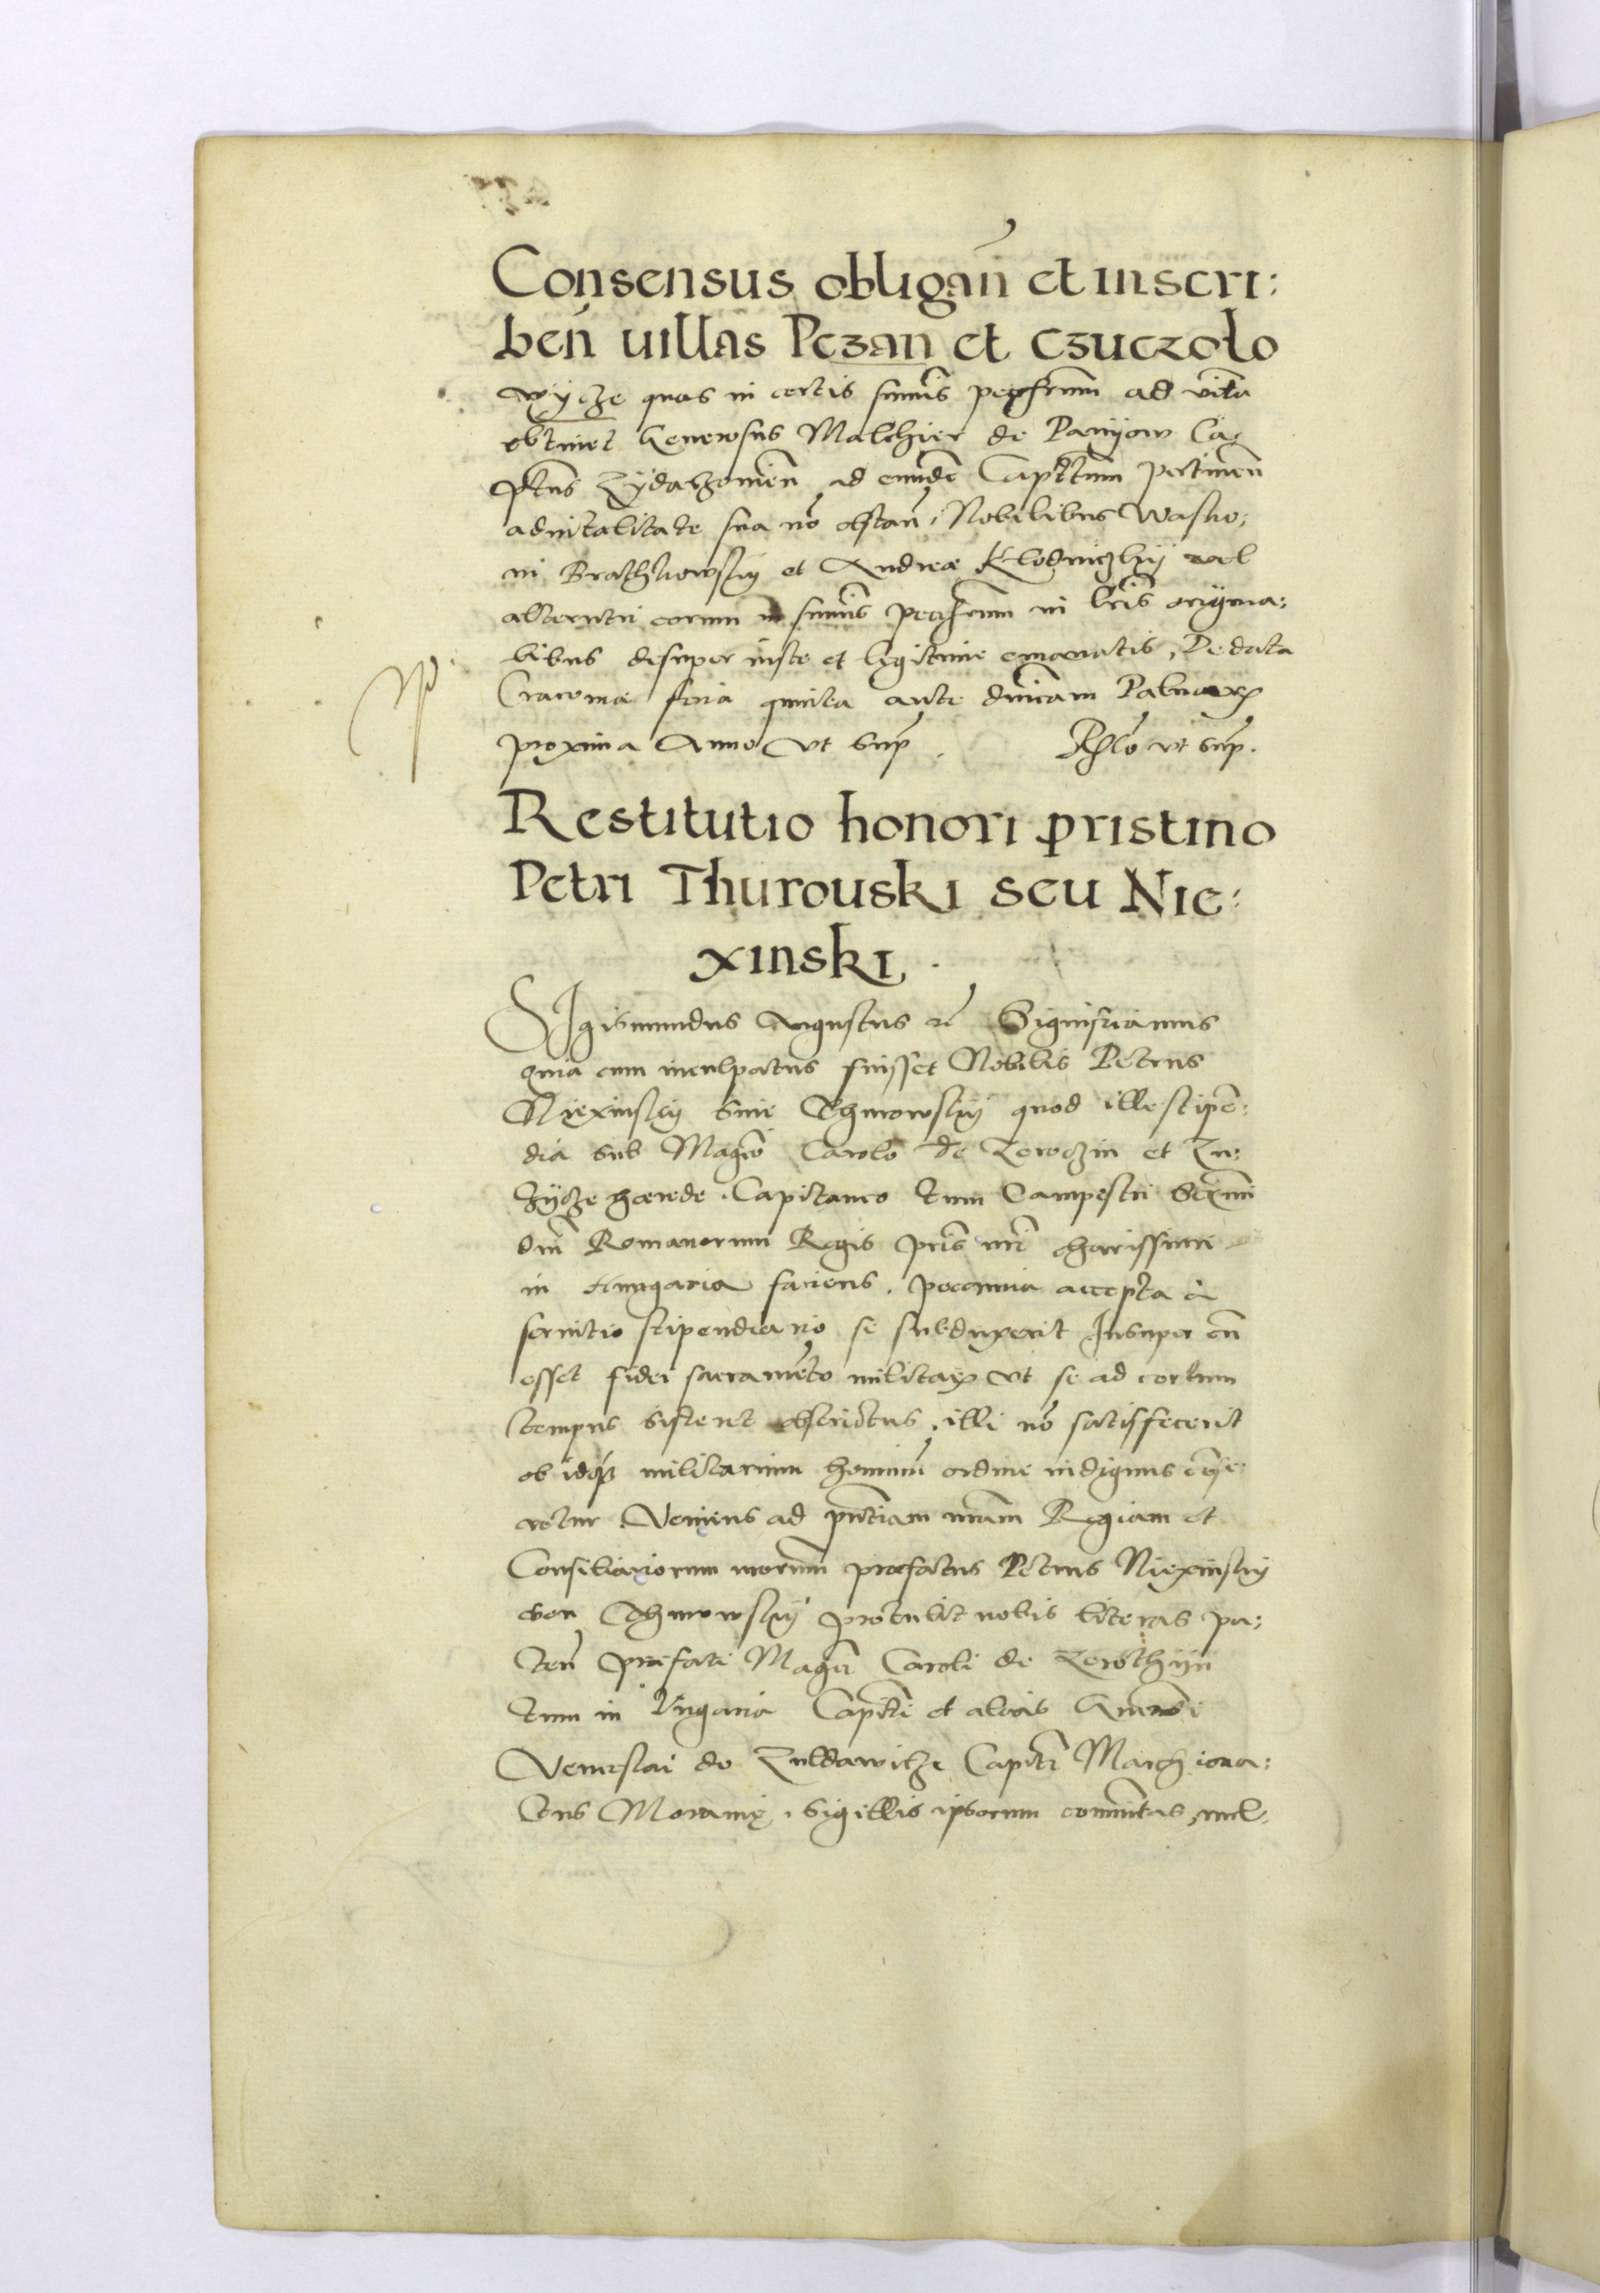 Consensus obligan̄ et inscri:
ben̄ uillas Pezan et Czuczolo
wycze quas in certis sum̄is pecūiarum ad vita
obtinet Generosus Malchier de Panijow Ca:
ptn̄s Zÿdaczouien̄ ad eundē Capttum pertinen̄
aduitalitate sua nō obstan̄, Nobilibus Wasko:
ni Brathkowskij et Andreæ Klodniczkij vel
alterutri eorum in sum̄is pecūiarum in lr̄is origina:
libus desuper iuste et legitime emanatis, De data
Cracouiæ feria quinta ante dn̄icam Palmarꝝ
proxima Anno vt sup̄. Rłō vt sup̄.
Restitutio honori pristino
Petri Thurouski seu Nie:
xinski.
Sigismundus Augustus rē Significamus
quia cum inculpatus fuisset Nobilis Petrus
Niexinskij siue Thurowskij quod ille stipē:
dia sub Mag̃co Carolo de Zeroczin et Zu:
hærede Capitaneo tum Campestri Serm̄i
dn̄i Romanorum Regis pr̄is nr̄i charissimi
in Hungaria faciens, pecunia accepta a
seruitio stipendiario se subduxerit Insuper cū
esset fidei sacramēto militarꝭ vt se ad certum
tempus sisteret obstrictus, illi nō satisfecerit
ob idqꝫ militarium hominū ordine indignus cēse:
retur. Veniens ad pn̄tiam nr̄am Regiam et
Consiliariorum nr̄orum præfatus Petrus Niexinskij
seu Thurowskij protulit nobis literas pa:
ten̄ præfati Mag̃ci Caroli de Zerothijn
tum in Vngaria Capitn̄i et alias Gn̄rosi
Venceslai de Capitn̄i Marchiona:
tus Morauię, sigillis ipsorum com̄unitas, mul-